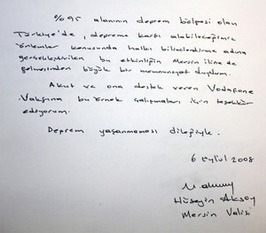 %95 alanının deprem bölgesi olan
Türkiye'de, depreme karşı alabileceğimiz
önlemler konusunda halkı bilinçlendirme adına
gerçekleştirilen bu etkinliğin Mersin iline de
gelmesinden büyük bir memnuniyet duydum.
Akut ve ona destek veren Vodafone
Vakfına bu örnek çalışmaları için teşekkür
ediyorum.
Deprem yaşanmaması dileğiyle.
6 Eylül 2008
Hüseyin Aksoy
Mersin Valisi